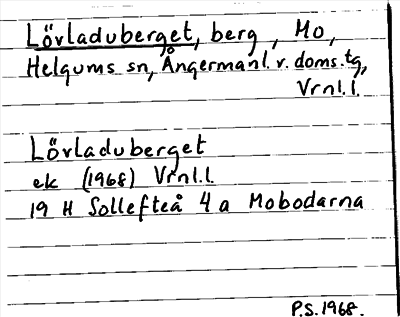 Lövladuberget, berg, Mo,
Helgums sn, Ångermanl. v. doms.tg,
Vrnl.l.
Lövladuberget
ek (1968) Vrnl.l.
19 H Sollefteå 4 a Mobodarna
P.S. 1968.